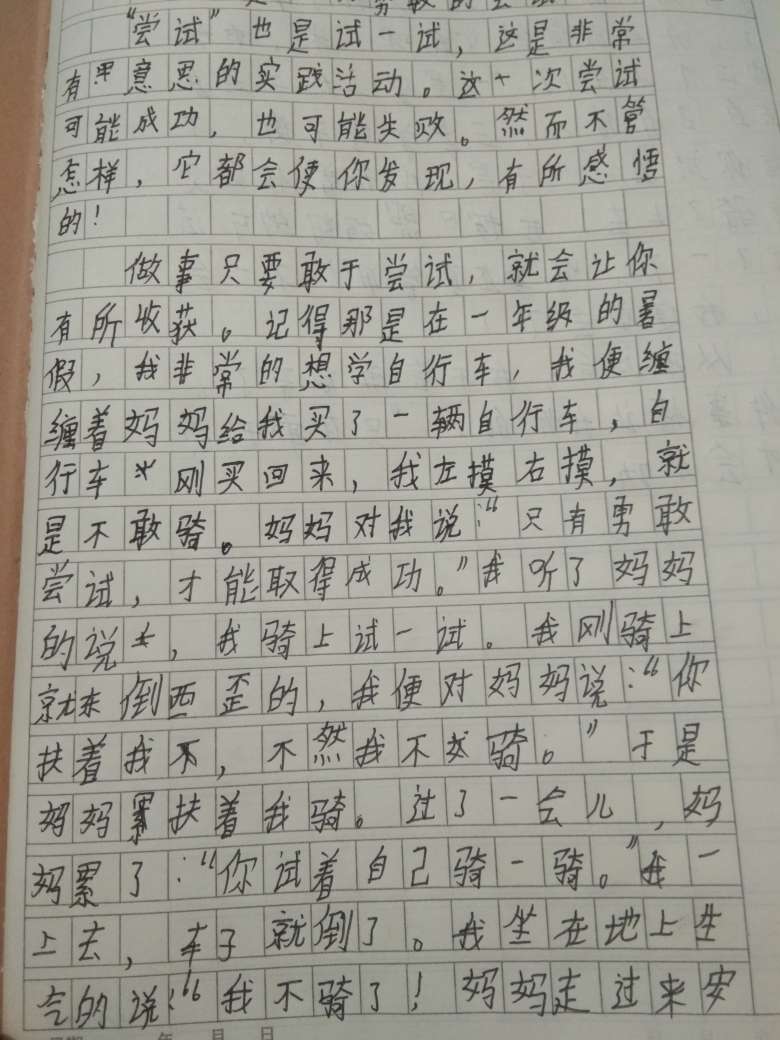 “尝试”也是试一试，这是非常
有意思的实践活动。这一次尝试
可能成功，也可能失败。然而不管
怎样，它都会使你发现，有所感悟
的！
做事只要敢于尝试，就会让你
有所收获。记得那是在一年级的暑
假，我非常的想学自行车，我便缠
缠着妈妈给我买了一辆自行车，自
行车刚买回来，我左摸右摸，就
是不敢骑。妈妈对我说：“只有勇敢
尝试，才能取得成功。”我听了妈妈
的说，我骑上试一试。我刚骑上
就东倒西歪的，我便对妈妈说：“你
扶着我，不然我不敢骑。”于是
妈妈扶着我骑。过了一会儿，妈
妈累了：“你试着自己骑一骑。”我一
上去，车子就倒了。我坐在地上生
气的说：“我不骑了！妈妈走过来安
年 月 日